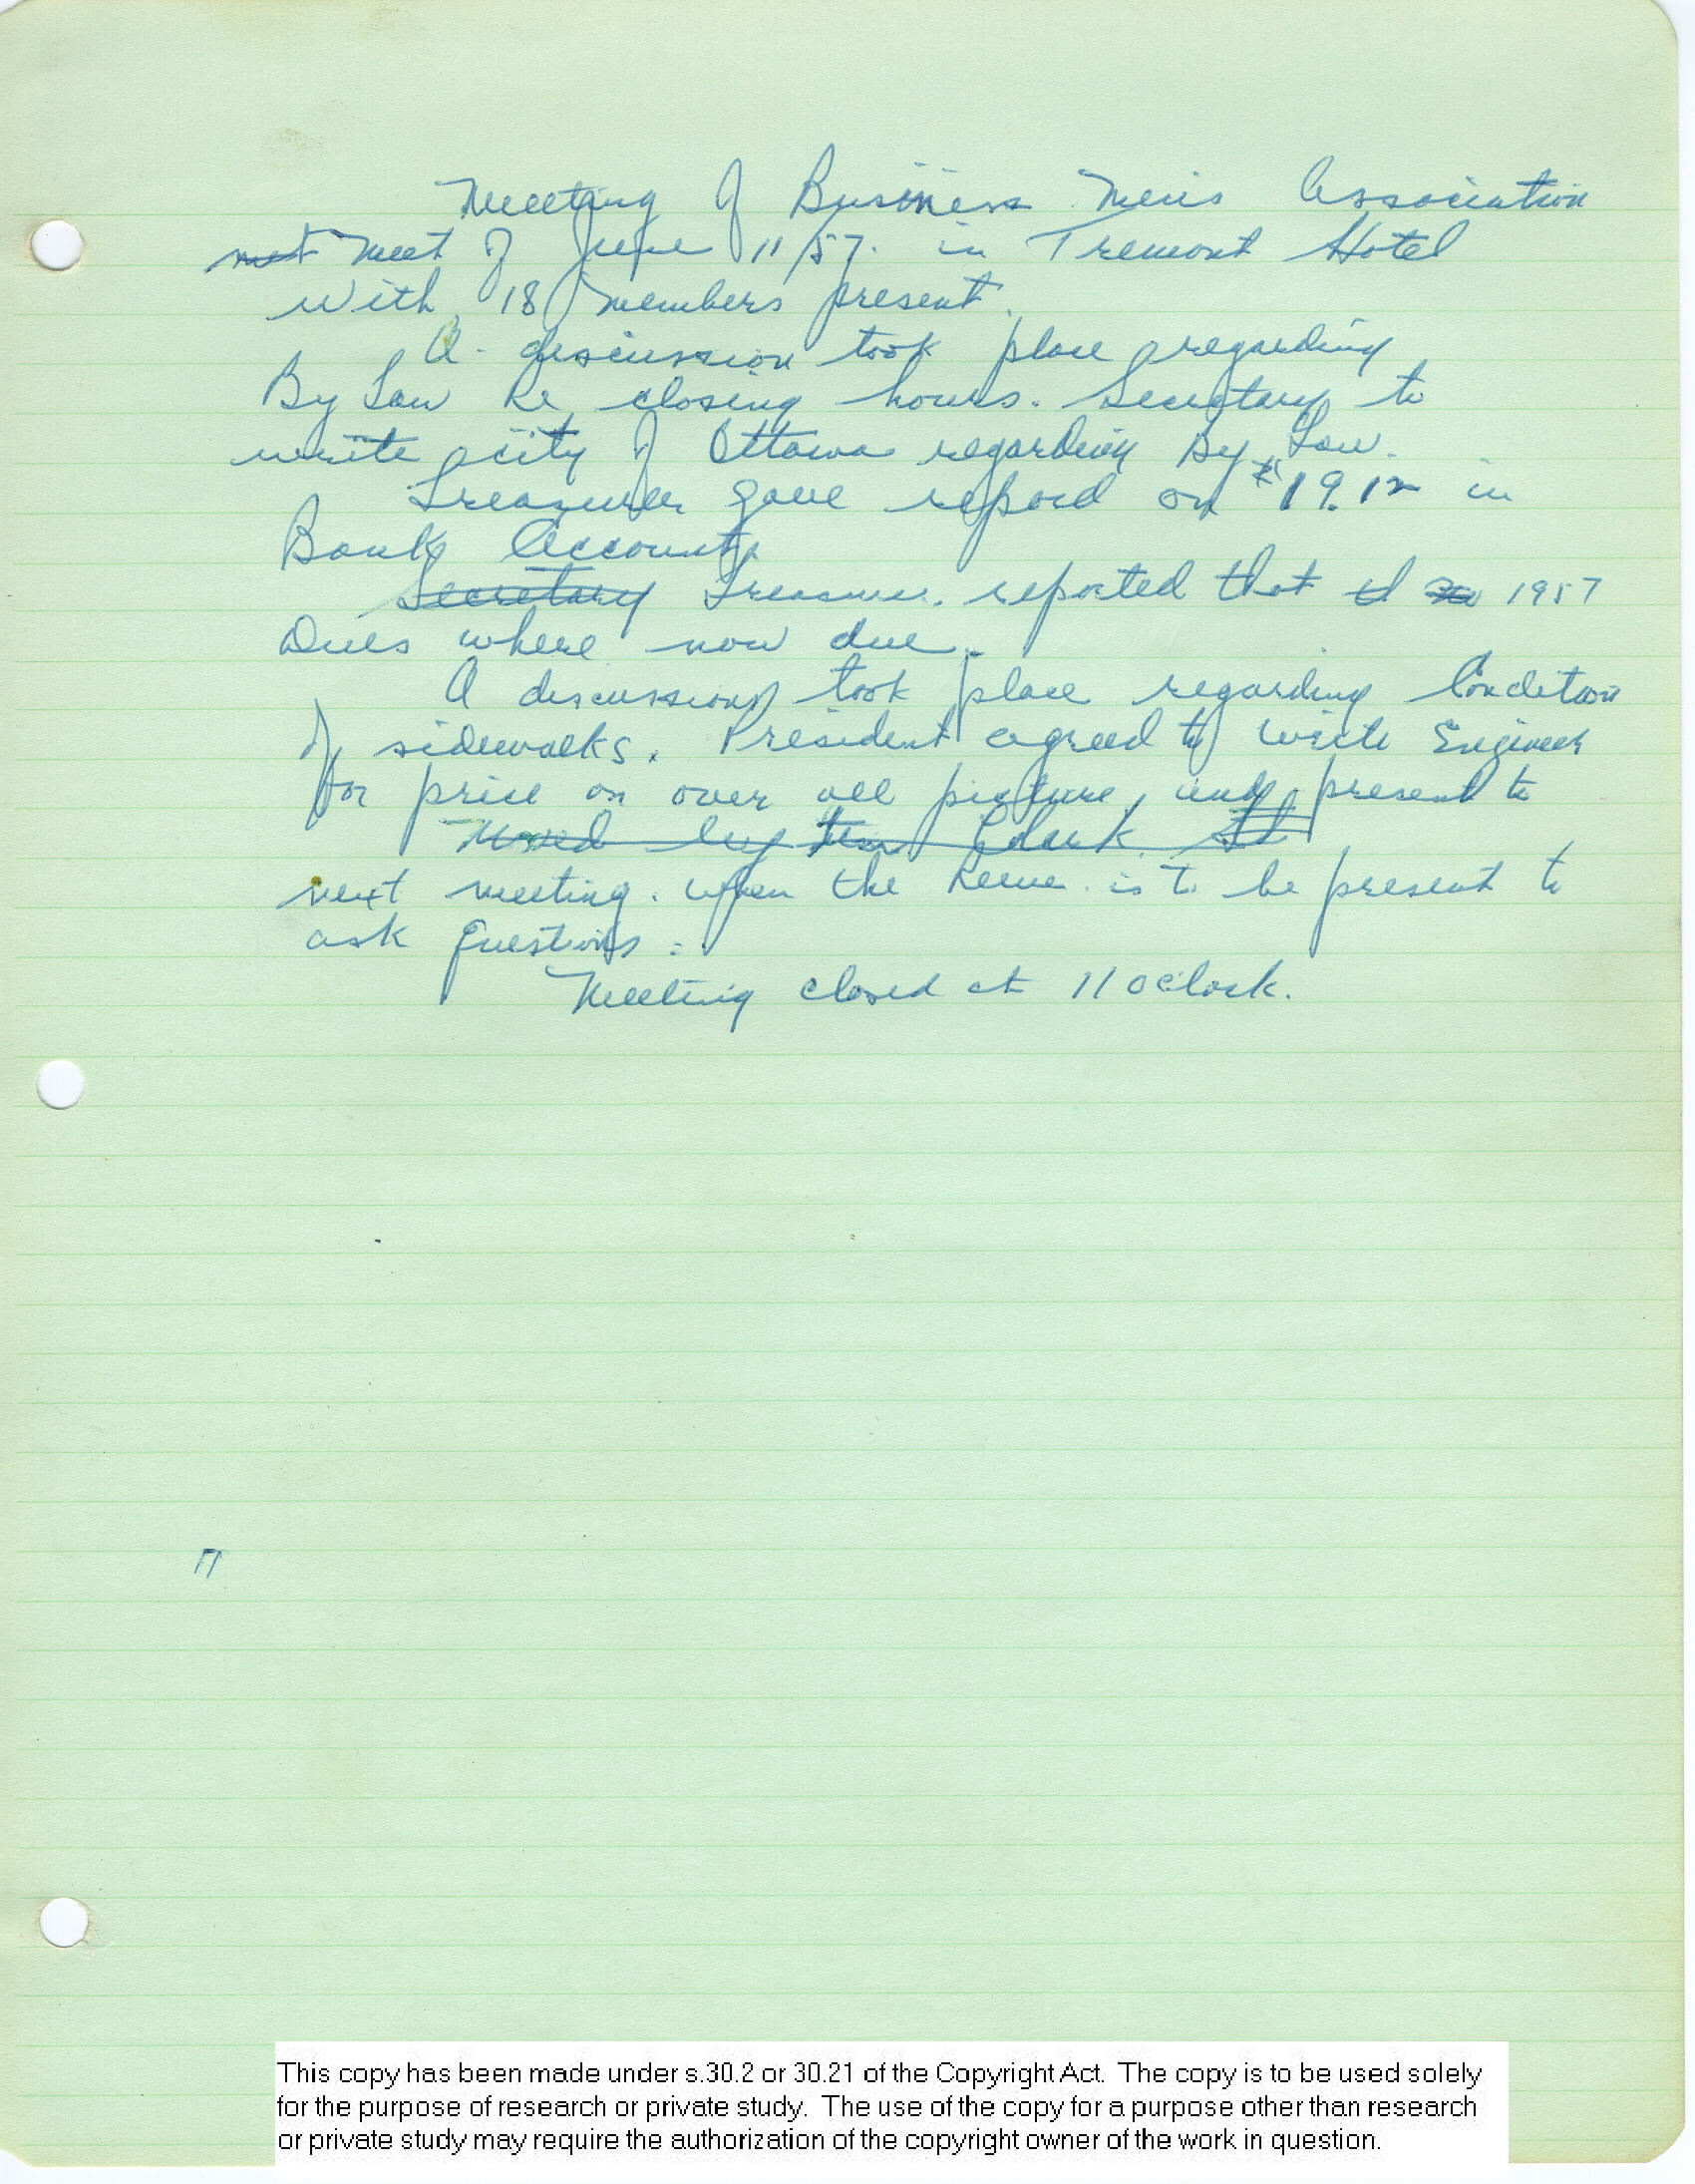 Meeting of Business Mens Association
met meet of June 11/57. in Tremont Hotel
with 18 members present.
A discussion took place regarding
By Law Re closing hours. Secretary to
write city of Ottawa regarding By Law.
Treasurer gave repord on $19.12 in
Bank Account.
Secretary Treasurer. reported that 1957
Dues where now due.
A discussion took place regarding Condition
of sidewalks. President agreed to write Engineer
for price on over all picture, and present to
Moved by Clark
next meeting. when the Reeve is to be present to
ask questions.
Meeting closed at 11 oclock.
This copy has been made under s.30.2 or 30.21 of the Copyright Act. The copy is to be used solely
for the purpose of research or private study. The use of the copy for a purpose other than research
or private study may require the authorization of the copyright owner of the work in question.